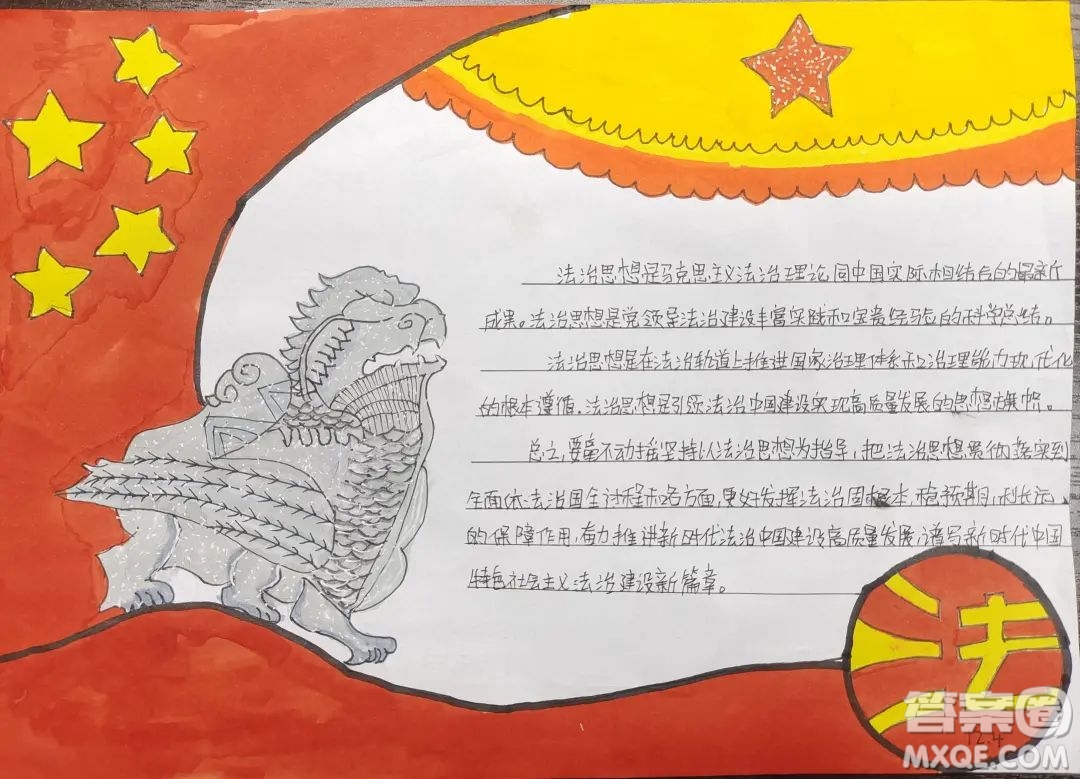 法治思想是马克思主义法治理论同中国实际相结合的最新
成果。法治思想是党领导法治建设丰富实践和宝贵经验的科学总结。
法治思想是在法治轨道上推进国家治理体系和治理能力现代化
的根本遵循，法治思想是引领法治中国建设实现高质量发展的思想旗帜。
总之，要毫不动摇坚持以法治思想为指导，把法治思想贯彻落实到
全面依法治国全过程和各方面，更好发挥法治固根本，稳预期，利长远，
的保障作用，奋力推进新时代法治中国建设高质量发展，谱写新时代中国
特色社会主义法治建设新篇章。
法
12.4
答案圈
MXQE.COM